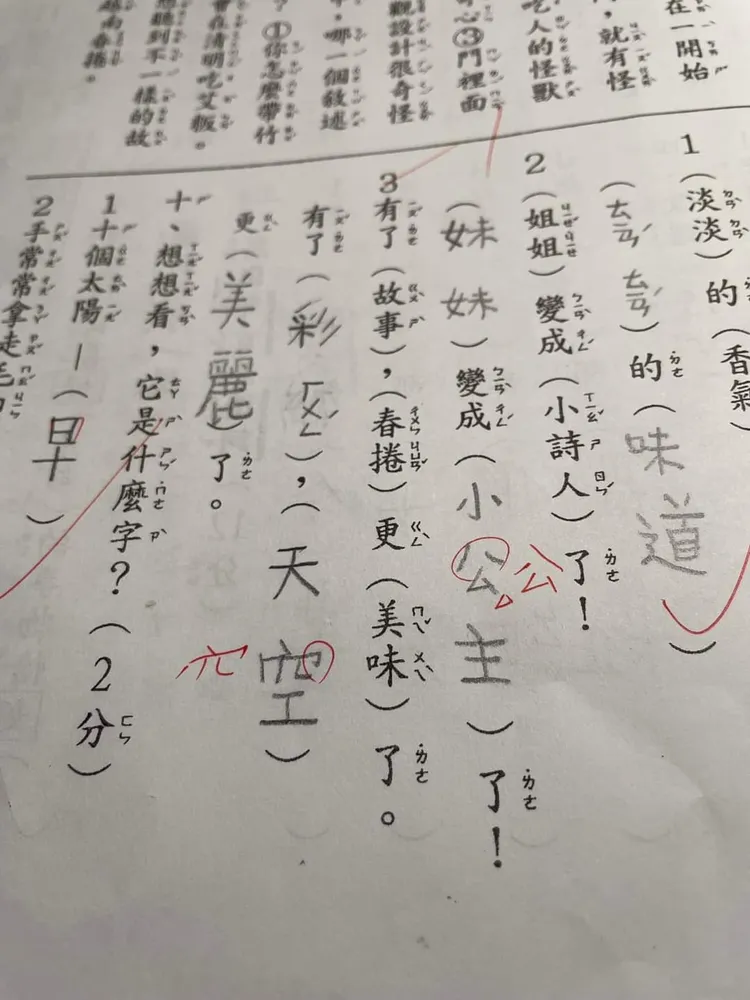 在一開始
，就有怪
吃人的怪獸
心③門裡面
觀設計很奇怪
，哪一個敘述
？①你怎麼帶竹
會在清明吃艾粄。
想聽到不一樣的故
越南春捲。
1（淡淡）的（香氣）
（ㄊㄢˊ ㄊㄢˊ）的（味道）
2（姐姐）變成（小詩人）了！
（妹妹）變成（小公主）了！
公
3有了（故事），（春捲）更（美味）了。
有了（彩ㄏㄨㄥˊ），（天空）
更（美麗）了。
十、想想看，它是什麼字？（2分）
1十個太陽—（早）
2手常常拿走毛